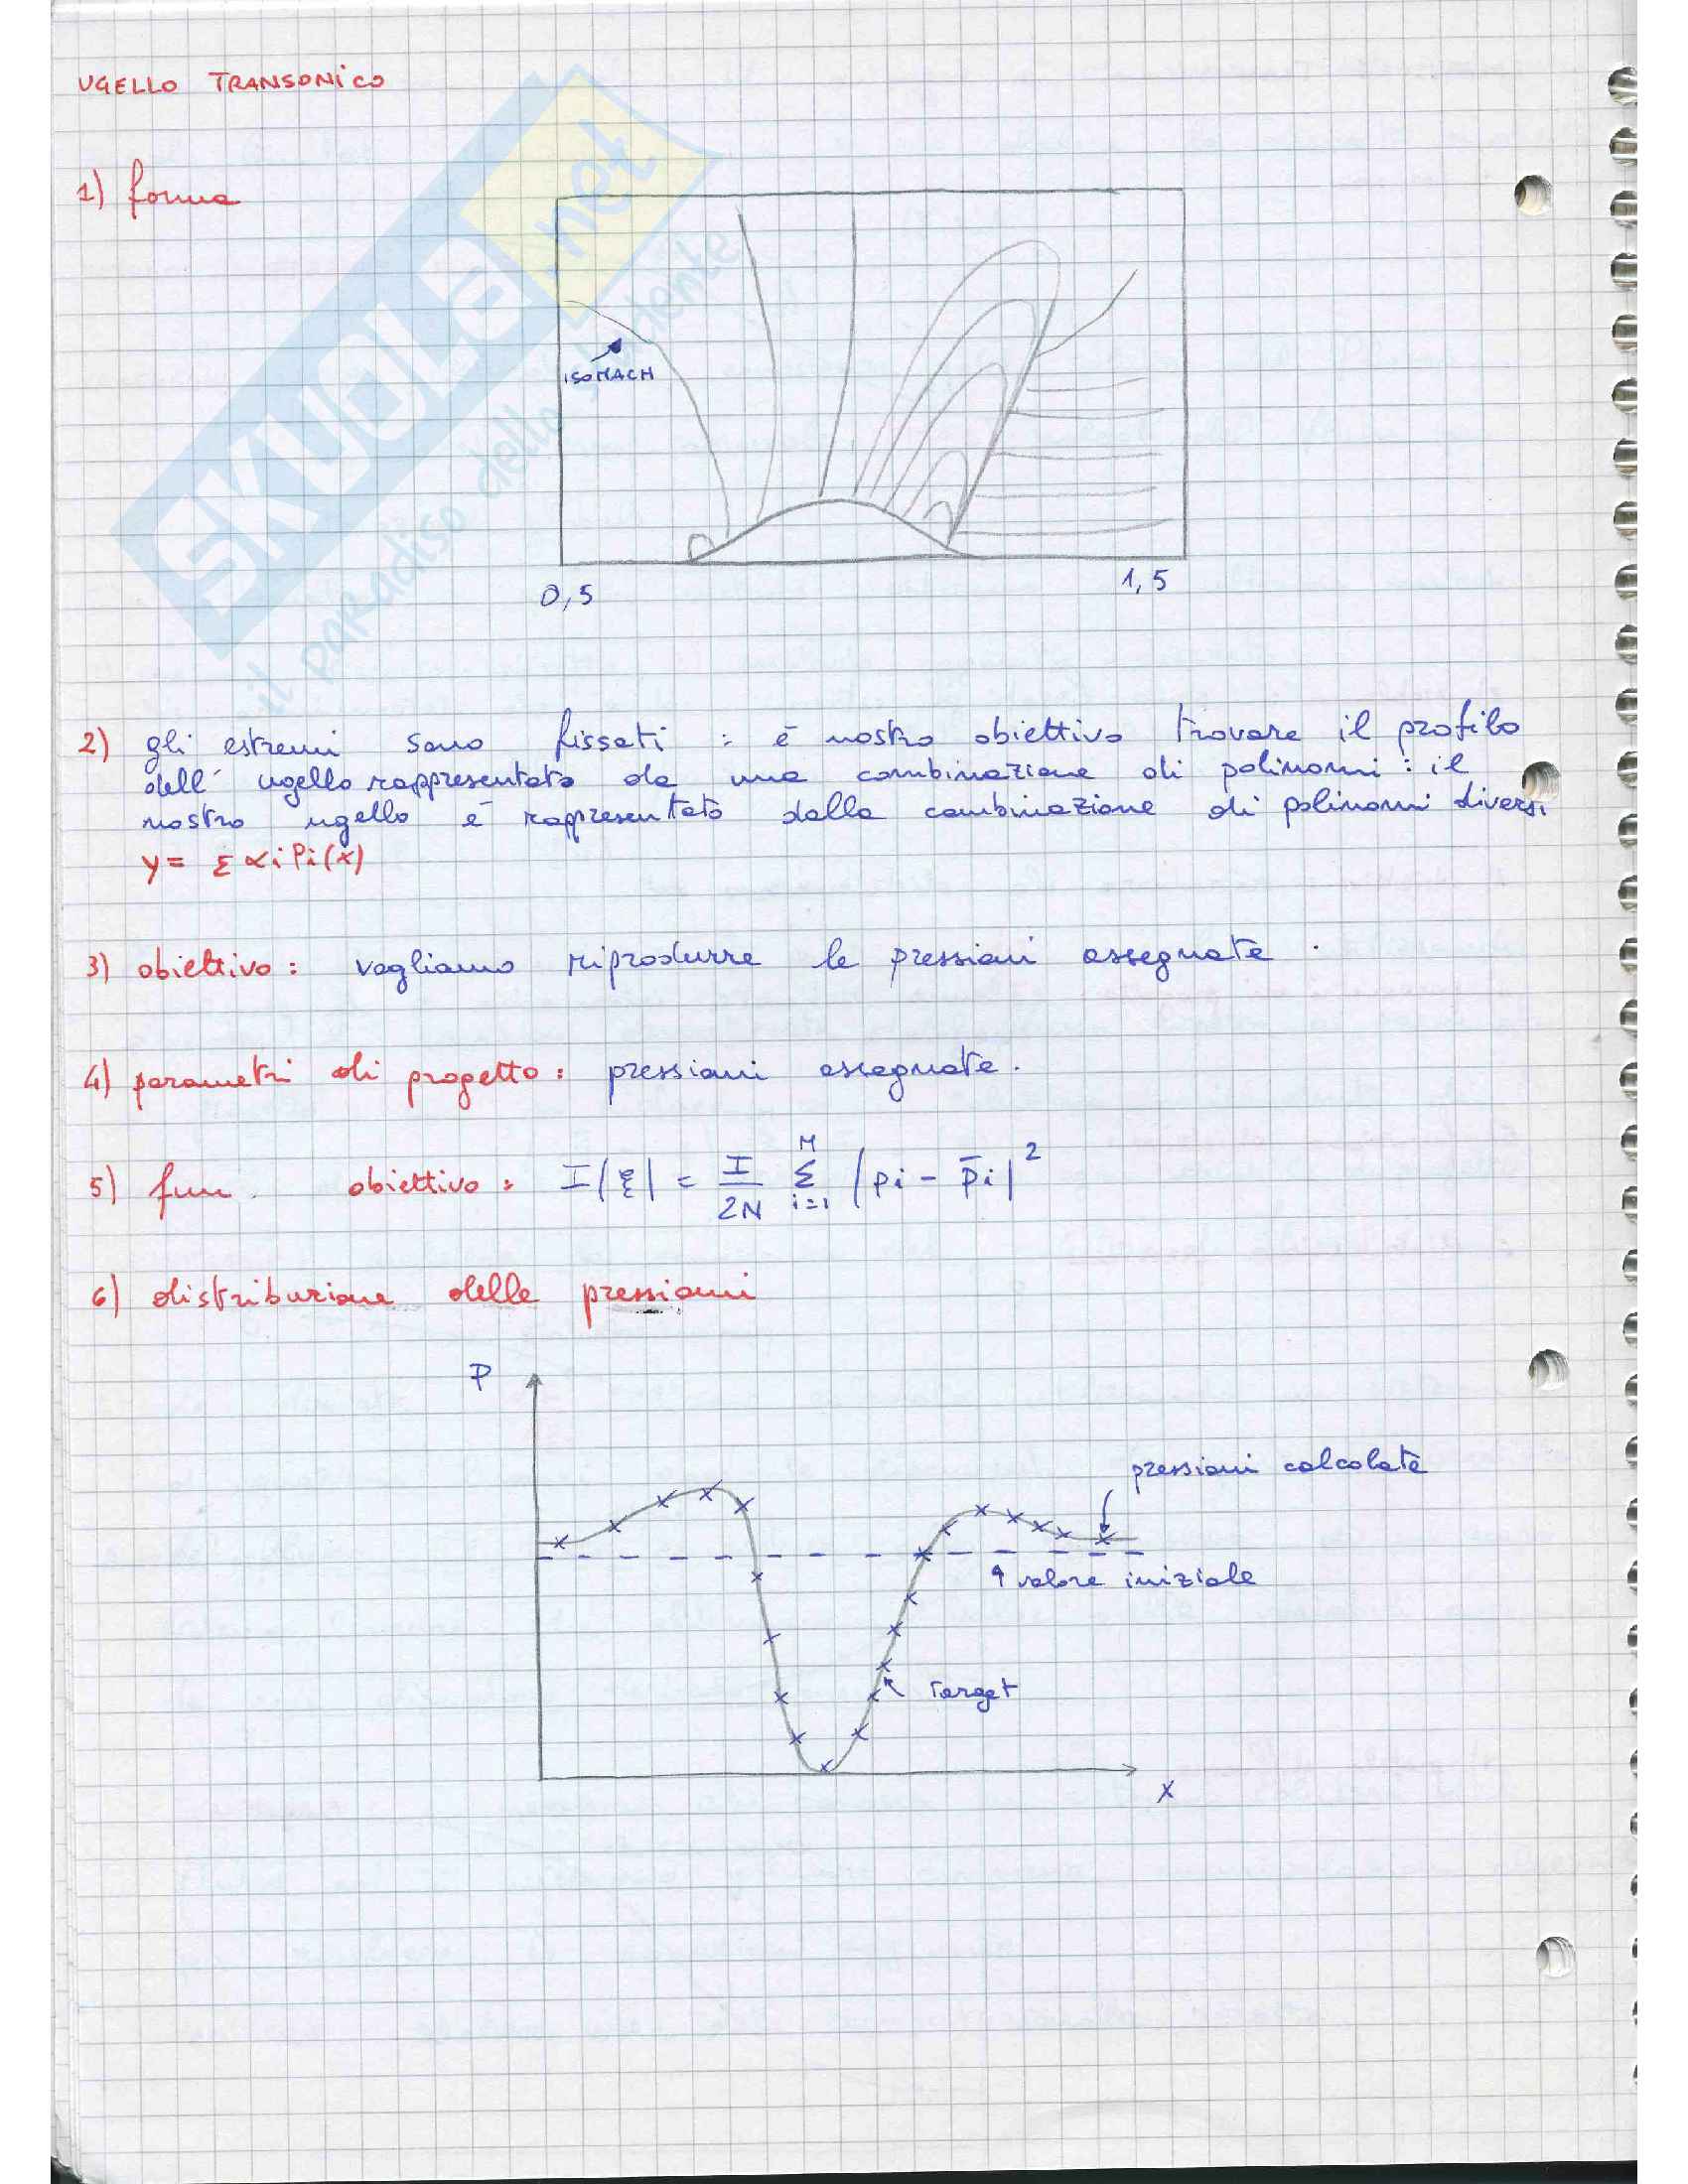 UGELLO TRANSONICO
1) forma
SKUOLA.net
il paradiso dello studente
ISOMACH
0,5
1,5
2) gli estremi sono fissati : è nostro obiettivo trovare il profilo
dell' ugello rappresentato da una combinazione di polinomi : il
nostro ugello è rappresentato dalla combinazione di polinomi diversi
y = Σ αi Pi(x)
3) obiettivo : vogliamo riprodurre le pressioni assegnate .
4) parametri di progetto : pressioni assegnate .
5) fun. obiettivo : I(ξ) = I/2N M Σ i=1 (pi - p̄i)²
6) distribuzione delle pressioni
P
pressioni calcolate
valore iniziale
Target
X